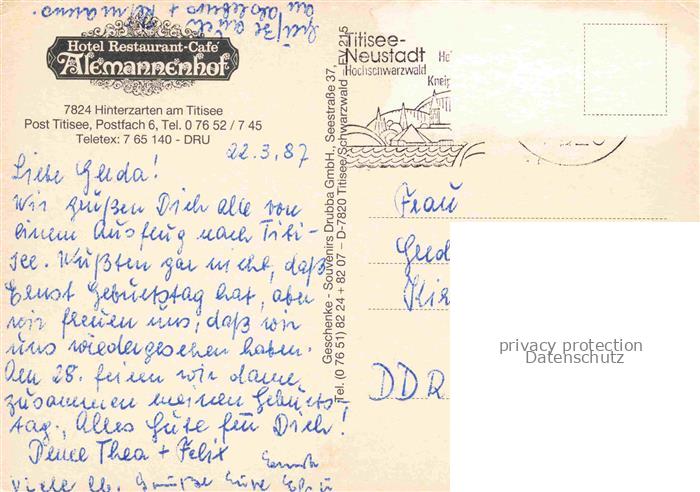 Hotel Restaurant-Café
Alemannenhof
7824 Hinterzarten am Titisee
Post Titisee, Postfach 6, Tel. 0 76 52 / 7 45
Teletex: 7 65 140 - DRU
22.3.87
Liebe Gerda!
Wir grüßen Dich alle von
einem Ausflug nach Titi-
see. Wußten gar nicht, daß
Ernst Geburtstag hat, aber
wir freuen uns, daß wir
uns wiedergesehen haben.
Am 28. feiern wir dann
zusammen meinen Geburts-
tag. Alles Gute für Dich!
Deine Thea + Felix
Viele lb. Grüße Eure
Grüße auch
an
Geschenke - Souvenirs Drubba GmbH., Seestraße 37,
Tel. (0 76 51) 82 24 + 82 07 – D-7820 Titisee/Schwarzwald – FN 215
Titisee-
Neustadt
Hochschwarzwald
Knei
Frau
Gerd
Kir
DDR
privacy protection
Datenschutz